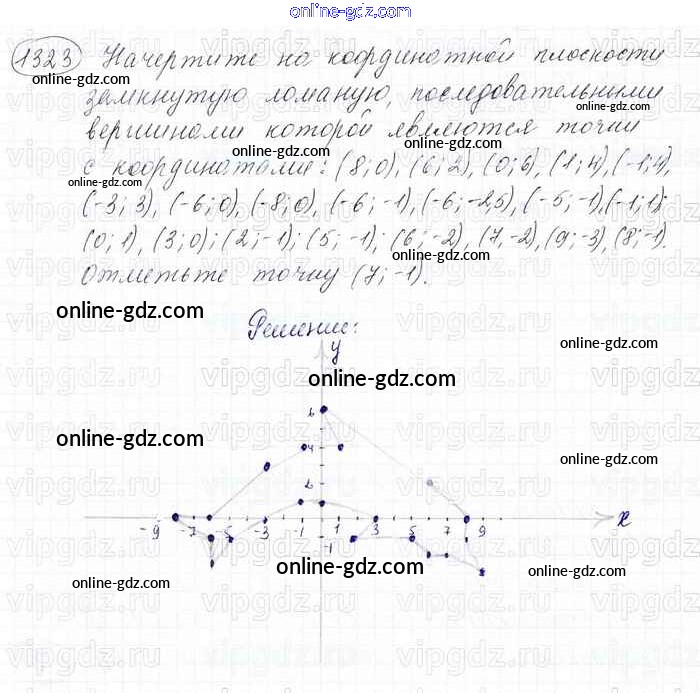 online-gdz.com
1323 Начертите на координатной плоскости
замкнутую ломаную, последовательными
вершинами которой являются точки
с координатами: (8; 0), (6; 2), (0; 6), (1; 4), (-1; 4),
(-3; 3), (-6; 0), (-8; 0), (-6; -1), (-6; -2,5), (-5; -1), (-1; 1);
(0; 1), (3; 0); (2; -1); (5; -1); (6; -2), (7, -2), (9; -3), (8; -1).
Отметьте точку (7; -1).
Решение:
y
6
4
2
-9 -7 -5 -3 -1 1 3 5 7 9 x
-1
online-gdz.com
online-gdz.com
online-gdz.com
online-gdz.com
online-gdz.com
online-gdz.com
online-gdz.com
online-gdz.com
online-gdz.com
online-gdz.com
online-gdz.com
online-gdz.com
online-gdz.com
online-gdz.com
vipgdz.ru